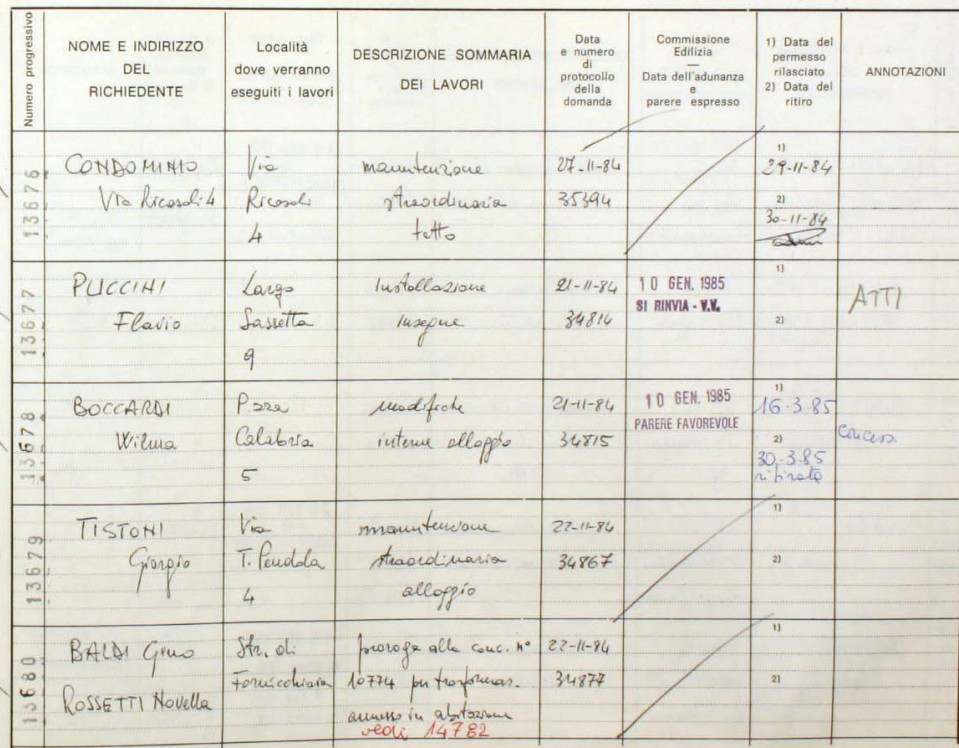 Numero progressivo
NOME E INDIRIZZO
DEL
RICHIEDENTE
Località
dove verranno
eseguiti i lavori
DESCRIZIONE SOMMARIA
DEI LAVORI
Data
e numero
di
protocollo
della
domanda
Commissione
Edilizia
—
Data dell'adunanza
e
parere espresso
1) Data del
permesso
rilasciato
2) Data del
ritiro
ANNOTAZIONI
13676
CONDOMINIO
Via Ricasoli 4
Via
Ricasoli
4
manutenzione
straordinaria
tetto
27-11-84
35394
1)
29-11-84
2)
30-11-84
13677
PUCCINI
Flavio
Largo
Sassetta
9
Installazione
insegne
21-11-84
34814
10 GEN. 1985
SI RINVIA - V.V.
1)
2)
ATTI
13678
BOCCARDI
Wilma
P.zza
Calabria
5
modifiche
interne alloggio
21-11-84
34815
10 GEN. 1985
PARERE FAVOREVOLE
1)
16-3-85
2)
30-3-85
ritirata
13679
TISTONI
Giorgio
Via
T. Pendola
4
manutenzione
straordinaria
alloggio
22-11-84
34867
1)
2)
13680
BALDI Gino
ROSSETTI Novella
Str. di
proroga alla conc. n°
10774 per trasformaz.
annesso in abitazione
vedi 14782
22-11-84
34877
1)
2)